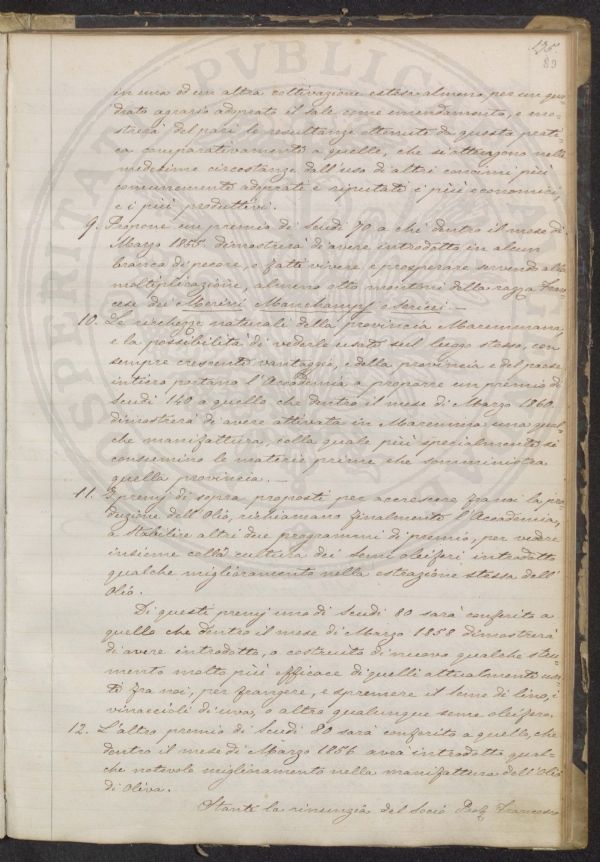 136.
89
in una od un altra coltivazione estesa almeno per un qua-
drato agrario adoprato il sale come emendamento, e mo-
strerà del pari le resultanze ottenute da questa prati-
ca comparativamente a quelle, che si ottengono nelle
medesime circostanze dall'uso di altri concimi più
comunemente adoprati e reputati i più economici,
e i più produttivi.
9. Propone un premio di Scudi 70 a chi dentro il mese di
Marzo 1855. dimostrerà di avere introdotto in alcun
branco di pecore, e fatti vivere, e prosperare servendo alla
moltiplicazione, almeno otto montoni della razza Fran-
cese dei Merini Mauchampf o serici. —
10. Le ricchezze naturali della provincia Maremmana,
e la possibilità di vederle usate sul luogo stesso, con
sempre crescente vantaggio, e della provincia e del paese
intiero portano l'Accademia a proporre un premio di
Scudi 140 a quello che dentro il mese di Marzo 1860
dimostrerà di avere attivata in Maremma una qual-
che manifattura, colla quale più specialmente si
consumino le materie prime che somministra
quella provincia. —
11. I premj di sopra proposti per accrescere fra noi la pro-
duzione dell'Olio, richiamano finalmente l'Accademia,
a stabilire altri due programmi di premio, per vedere
insieme colla cultura dei semi oleiferi introdotto
qualche miglioramento nella estrazione stessa dell'
Olio.
Di questi premj uno di Scudi 80 sarà conferito a
quello che dentro il mese di Marzo 1858 dimostrerà
di avere introdotto, o costruito di nuovo qualche stru-
mento molto più efficace di quelli attualmente usa-
ti fra noi, per frangere, e spremere il seme di lino, i
vinaccioli di uva, o altro qualunque seme oleifero.
12. L'altro premio di Scudi 80 sarà conferito a quello, che
dentro il mese di Marzo 1856 avrà introdotto qual-
che notevole miglioramento nella manifattura dell'Olio
di Oliva.
Stante la rinunzia del Socio Francesco
PROSPERITATI PUBLICAE AUGENDAE